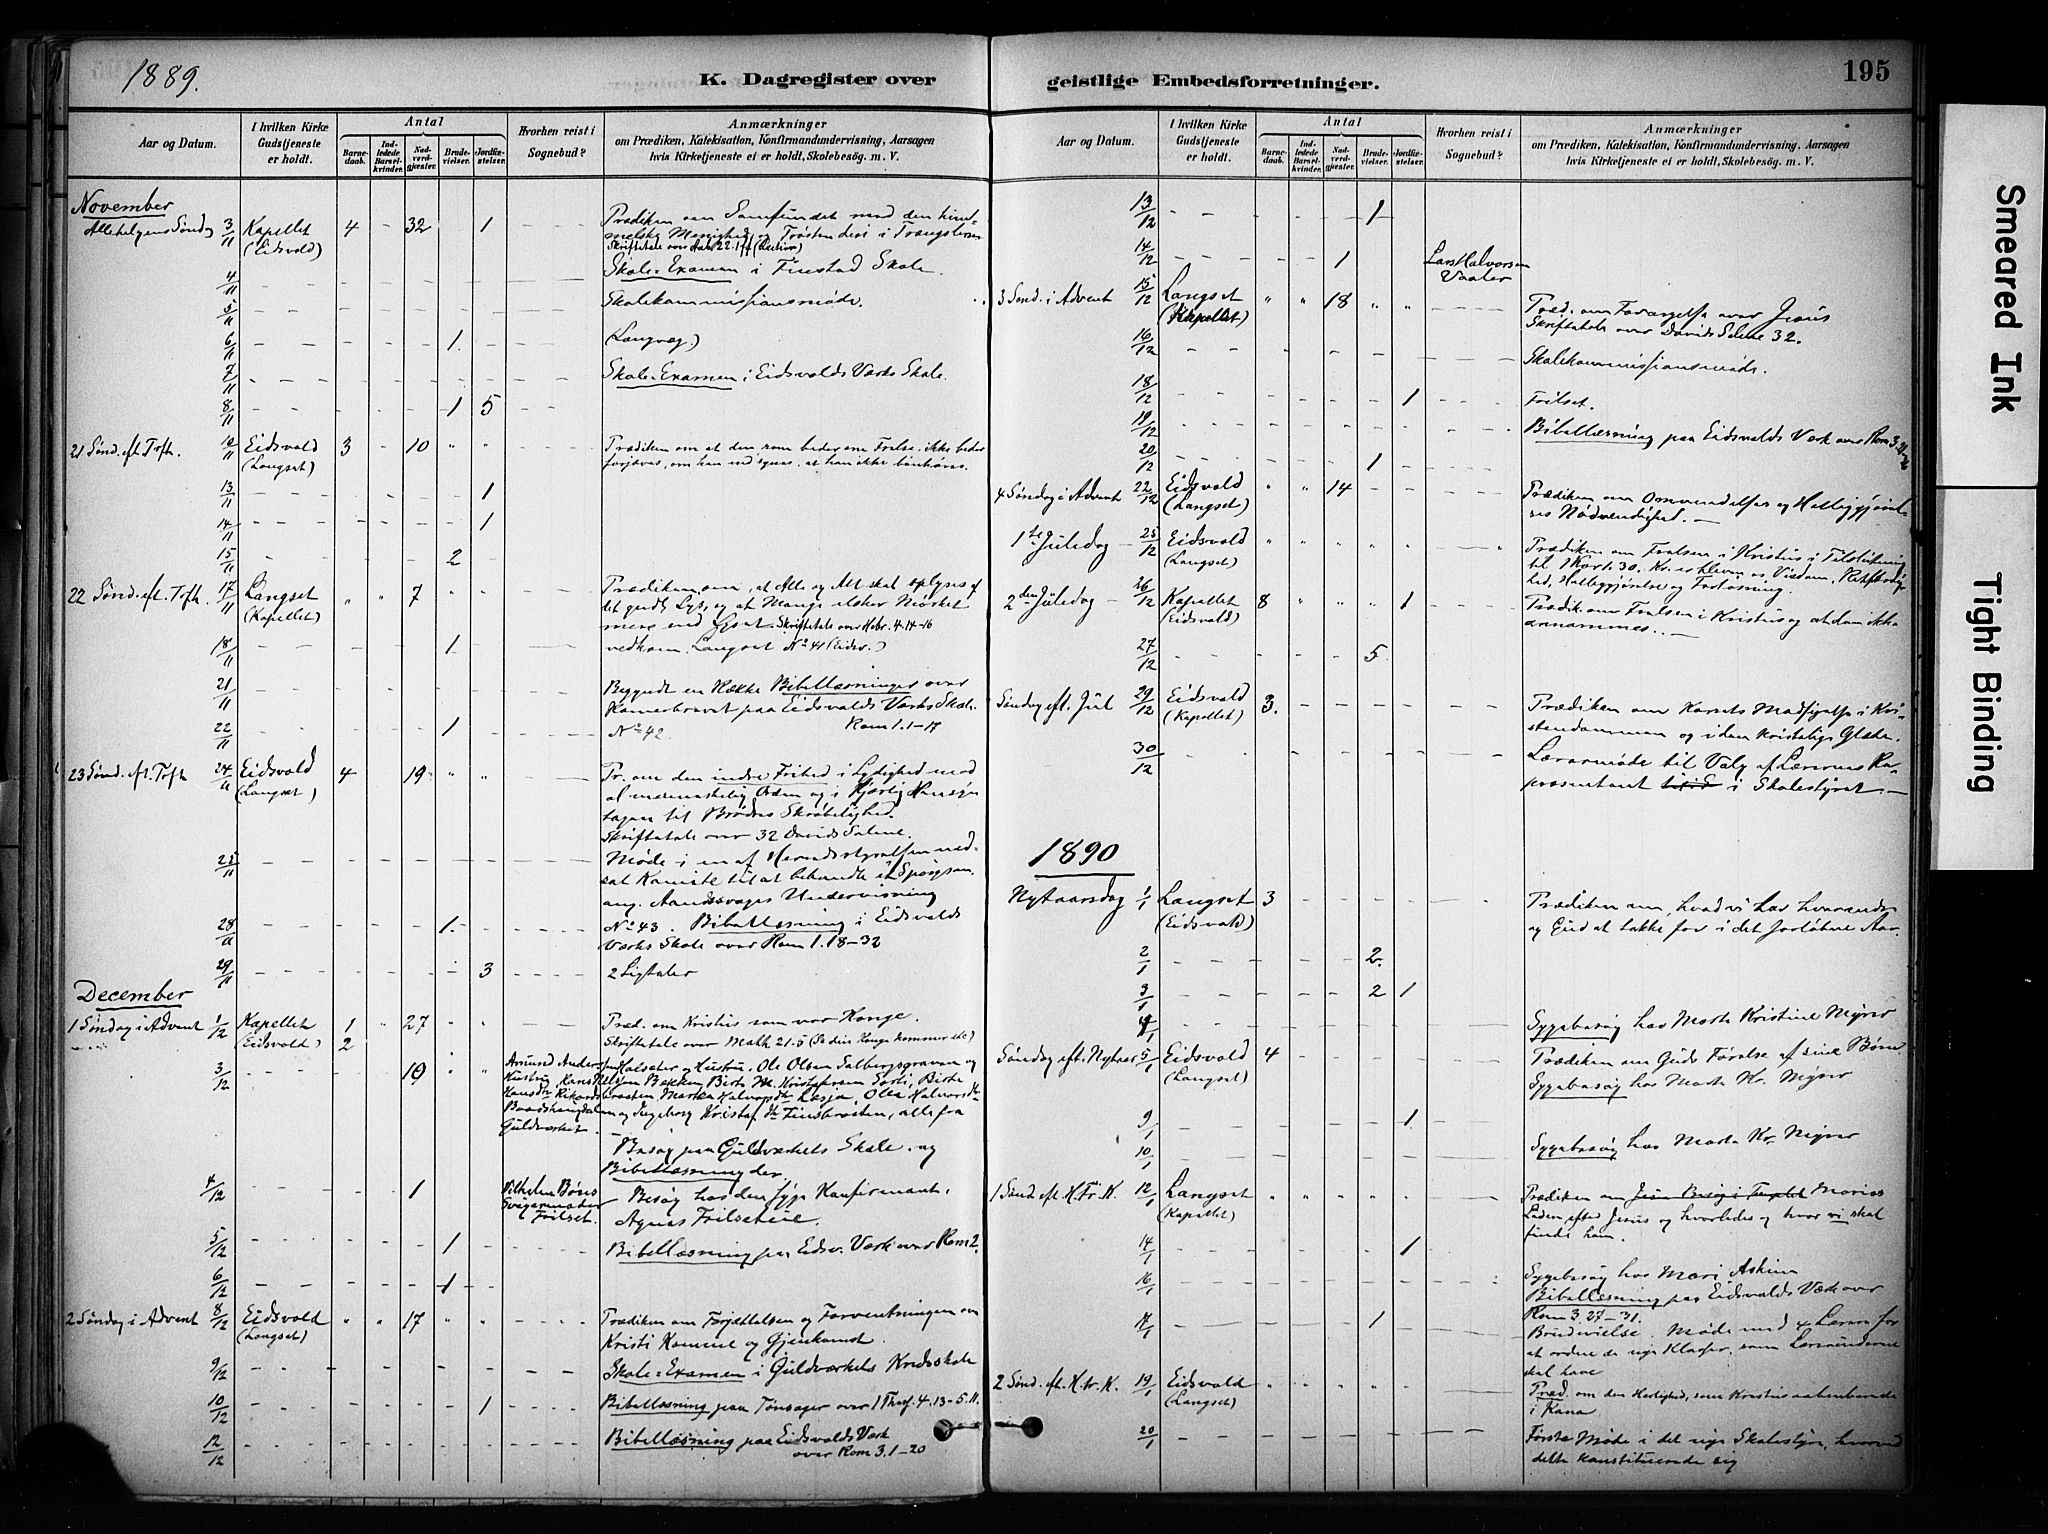 1889.
K. Dagregister over
Aar og Datum.
I hvilken Kirke Gudstjeneste er holdt.
Antal
Barnedaab.
Indledede Barselkvinder.
Nadverdgjester.
Brudevielser.
Jordfæstelser.
Hvorhen reist i Sognebud?
Anmærkninger
om Prædiken, Katekisation, Konfirmandundervisning, Aarsagen
hvis Kirketjeneste ei er holdt, Skolebesög. m. V.
November
Allehelgens Søndag 3/11 Kapellet 4 - 32 1 Prædiken om Samfundet med den himmelske Menighed og Trøsten deri i Trængsler
(Eidsvold)
4/11 Skole-Examen i Finstad Skole.
5/11 Skolekommissionsmøde.
6/11 1. (Langvæg.)
7/11 Skole-Examen i Eidsvolds Værks Skole.
8/11 1 5
21 Sønd. eft. Trft. 10/11 Eidsvold 3 - 10 " " Prædiken om at den, som beder om Frelse, ikke beder
(Langset) forgjæves, om han end synes, at han ikke bønhøres.
13/11 1
14/11 1
15/11 2
22 Sønd. eft. Trft. 17/11 Langset " " 7 " " Prædiken om, at Alle og Alt skal oplyses af
(Kapellet) det gudd. Lys, og at Mange elsker Mørket
mere end Lyset. Skriftetale over Hebr. 4.14-16
18/11 1. vedkom. Langset No 41 (Eidsv.)
21/11 Begyndt en Række Bibellæsninger over
Romerbrevet paa Eidsvolds Værks Skole.
Rom 1.1-17
22/11 1 No 42.
23 Sønd. eft. Trft 24/11 Eidsvold 4 19 " " Pr. om den indre Frihed i Lydighed mod
(Langset) al menneskelig Orden og i kjærlig Hensyntagen
til Brødres Skrøbelighed.
Skriftetale over 32 Davids Salme.
25/11 Møde i en af Herredsstyrelsen nedsat
Komite til at behandle et Spørgsm.
ang. Aandssvages Undervisning
28/11 1. No 43. Bibellæsning i Eidsvolds
Værks Skole over Rom 1.18-32
29/11 3 2 Ligtaler
December
1 Søndag i Advent 1/12 Kapellet 1 " 27 " " Præd. om Kristus som vor Konge.
(Eidsvold) 2 Skriftetale over Math 21.5 (Se din Konge kommer etc)
3/12 19 " Amund Andersen Halsater og Hustru, Ole Olsen Salbergsgraven og
Hustru, Hans Nilsen Bakken, Birte M. Kristofersen Sorli, Birte
Guldværket.
Besøg paa Guldværkets Skole og
Bibellæsning der
4/12 1 Vilhelm Bøns Besøg hos den syge Konfirmant,
Svigermoder
Frilset. Agnes Frilseteie.
5/12 1 Bibellæsning paa Eidsv. Værk over Rom 2.
6/12 1
2 Søndag i Advent 8/12 Eidsvold " " 17 " " Prædiken om Forjættelsen og Forventningen om
(Langset) Kristi Komme og Gjenkomst.
9/12 Skole-Examen i Guldværkets Kredsskole
10/12 1 Bibellæsning paa Tønsager over 1 Thess. 4.13-5.11.
12/12 Bibellæsning paa Eidsvolds Værk
over Rom 3.1-20
geistlige Embedsforretninger.
195
Aar og Datum.
I hvilken Kirke Gudstjeneste er holdt.
Antal
Barnedaab.
Indledede Barselkvinder.
Nadverdgjester.
Brudevielser.
Jordfæstelser.
Hvorhen reist i Sognebud?
Anmærkninger
om Prædiken, Katekisation, Konfirmandundervisning, Aarsagen
hvis Kirketjeneste ei er holdt, Skolebesög. m. V.
13/12 1
14/12 1 Lars Halvorsen
Vaaler
3 Sønd. i Advent 15/12 Langset " " 18 " " Præd. om Forargelse over Jesus
(Kapellet) Skriftetale over Davids Salme 32.
16/12 Skolekommissionsmøde.
18/12 1 Frilset.
19/12 Bibellæsning paa Eidsvolds Værk over Rom 3.
20/12 1
4 Søndag i Advent 22/12 Eidsvold " " 14 Prædiken om Omvendelsens og Helliggjørelsens
(Langset) Nødvendighed. —
1ste Juledag 25/12 Eidsvold " " " " " Prædiken om Frelsen i Kristus i Tilslutning
(Langset) til 1 Kort. 1.30. Kr. er bleven os Visdom, Retfærdighed,
Helliggjørelse og Forløsning.
2den Juledag 26/12 Kapellet 8 " " " 1 Prædik. om Frelsen i Kristus og at den ikke
(Eidsvold) annammes. —
27/12 5
Søndag eft. Jul 29/12 Eidsvold 3. Prædiken om Korsets Modsigelse i Kristendommen
(Kapellet) og i den kristelige Glæde.
30/12 Læremøde til Valg af Lærernes Repræsentant
i Skolestyret. —
1890
Nytaarsdag 1/1 Langset 3 Prædiken om, hvad vi har hverandre
(Eidsvold) og Gud at takke for i det forløbne Aar.
2/1 2.
3/1 2 1
4/1 Sygebesøg hos Marte Kristine Myrer
Søndag eft. Nytaar 5/1 Eidsvold 4 Prædiken om Guds Førelse af sine Børn
(Langset) Sygebesøg hos Marte Kr. Myrer
9/1 1.
10/1 Sygebesøg hos Marte Kr. Myrer
1 Sønd. eft. H. Tr. K. 12/1 Langset " " " " " Prædiken om Jesu Besøg i Templet Marias
(Kapellet) Leden efter Jesus og hvorledes og hvor vi skal
finde ham.
14/1 1
16/1 Sygebesøg hos Mari Askim
Bibellæsning paa Eidsvolds Værk over
Rom 3.27-31.
17/1 1 Brudevielse. Møde med 4 Lærere for
at ordne de nye Klasser, som Læremiderne
skal have
2 Sønd. eft. H. tr. K. 19/1 Eidsvold " " " " " Præd. om den Herlighed, som Kristus aabenbarede
(Langset) i Kana
20/1 Første Møde i det nye Skolestyre, hvorved
dette konstituerede sig
Smeared Ink
Tight Binding